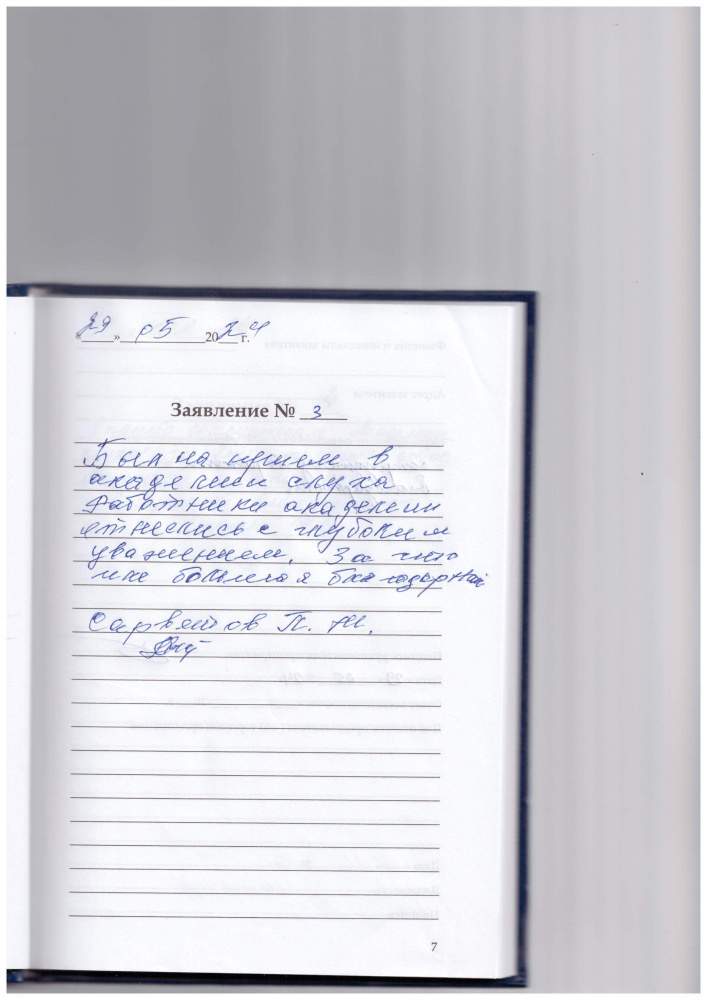 «29» 05 2024 г.
Заявление № 3
Был на приеме в
академии слуха
Работники академии
отнеслись с глубоким
уважением. За что
им большая благодарность
П. М.
7